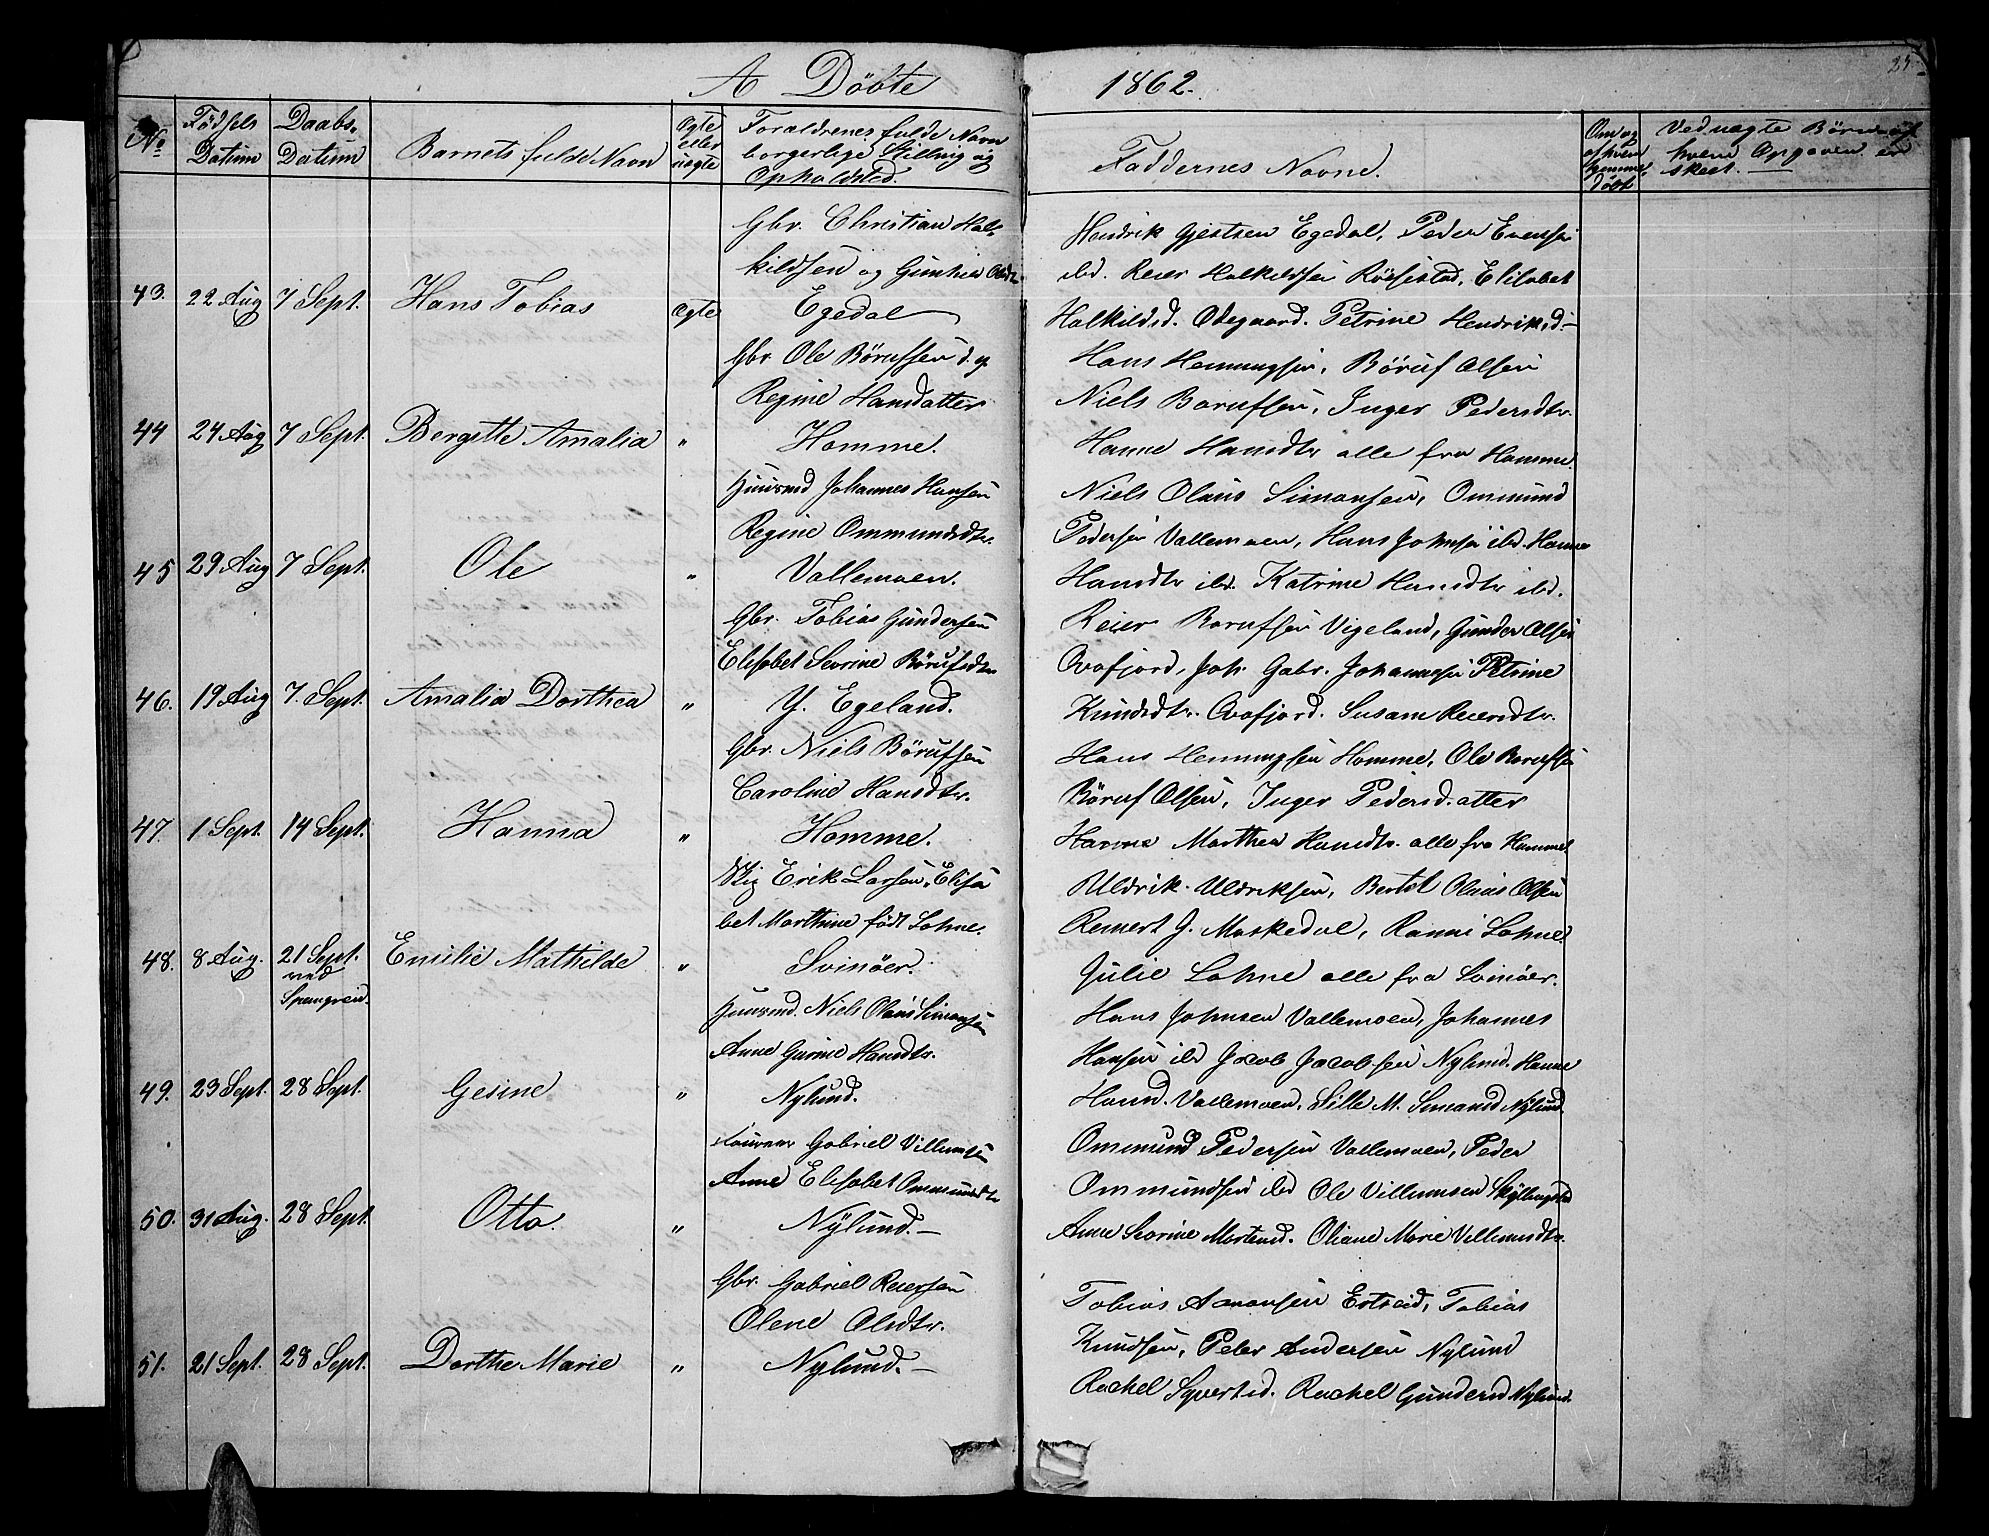 A Döbte 1862. 25
No
Födsels Datum
Daabs Datum
Barnets fulde Navn
Ægte eller uægte
Forældrenes fulde Navn borgerlige Stilling og Opholdsted.
Faddernes Navne.
Om og af hvem hjemmedöbt
Ved uægte Börn af hvem Opgaven er skeet.
43. 22 Aug 7 Sept. Hans Tobias Ægte
Gbr. Christian Hal-
kildsen og Gunhild Olsdtr
Egedal
Hendrik Gjertsen Egedal, Peder Evensen
ibd. Reier Halkildsen Röisestad, Elisabet
Halkildsd. Ödegaard. Petrine Hendriksd.
44 24 Aug 7 Sept. Bergitte Amalia "
Gbr Ole Börufsen d. y.
Regine Hansdatter
Homme.
Hans Hemmingsen, Böruf Olsen
Niels Borufsen, Inger Pedersdtr.
Hanne Hansdtr alle fra Homme.
45 29 Aug 7 Sept. Ole "
Huusmd Johannes Hansen
Regine Ommundsdtr.
Vallemoen.
Niels Olaus Simonsen, Ommund
Pedersen Vallemoen, Hans Johnsen ibd. Hanne
Hansdtr ibd. Katrine Hansdtr ibd.
46. 19 Aug 7. Sept. Amalia Dorthea "
Gbr. Tobias Gundersen
Elisabet Sevrine Börufsdtr
Y. Egeland.
Reier Borufsen Vigeland, Gunder Olsen
Ovafjord, Joh. Gabr. Johannesen Petrine
Knudsdtr. Ovafjord. Susane Reiersdtr.
47. 1 Sept. 14 Sept. Hanna "
Gbr. Niels Börufsen
Caroline Hansdtr.
Homme.
Hans Hemmingsen Homme, Ole Borufsen
Böruf Olsen, Inger Pedersdatter
Hanne Marthea Hansdtr. alle fra Homme
48. 8 Aug. 21 Sept. ved Spangreid. Emilie Mathilde "
Erik Larsen, Elisa
bet Marthine födt Lohne.
Svinöer.
Uldrik Uldriksen, Bertol Olaus Olsen
Reinert J. Maskedal, Ranni Lohne
Julie Lohne alle fra Svinöer.
49. 23 Sept. 28 Sept. Gesine "
Huusmd. Niels Olaus Simonsen
Anne Gurine Hansdtr.
Nylund.
Hans Johnsen Vallemoen, Johannes
Hansen ibd Jacob Jacobsen Nylund. Hanne
Hansd. Vallemoen, Sille M. Simonsd Nylund.
50. 31 Aug. 28 Sept. Otto. "
Gabriel Villumsen
Anne Elisabet Ommundsdtr
Nylund.
Ommund Pedersen Vallemoen, Peder
Ommundsen ibd Ole Villumsen Skyllingstad
Anne Sevrine Mortensd. Oliane Marie Villumsdtr.
51. 21 Sept. 28 Sept. Dorthe Marie "
Gbr. Gabriel Reiersen
Olene Olsdtr.
Nylund.
Tobias Aanonsen Eitreid, Tobias
Knudsen, Peter Andersen Nylund
Rachel Syvertsd. Rachel Gundersd Nylund.